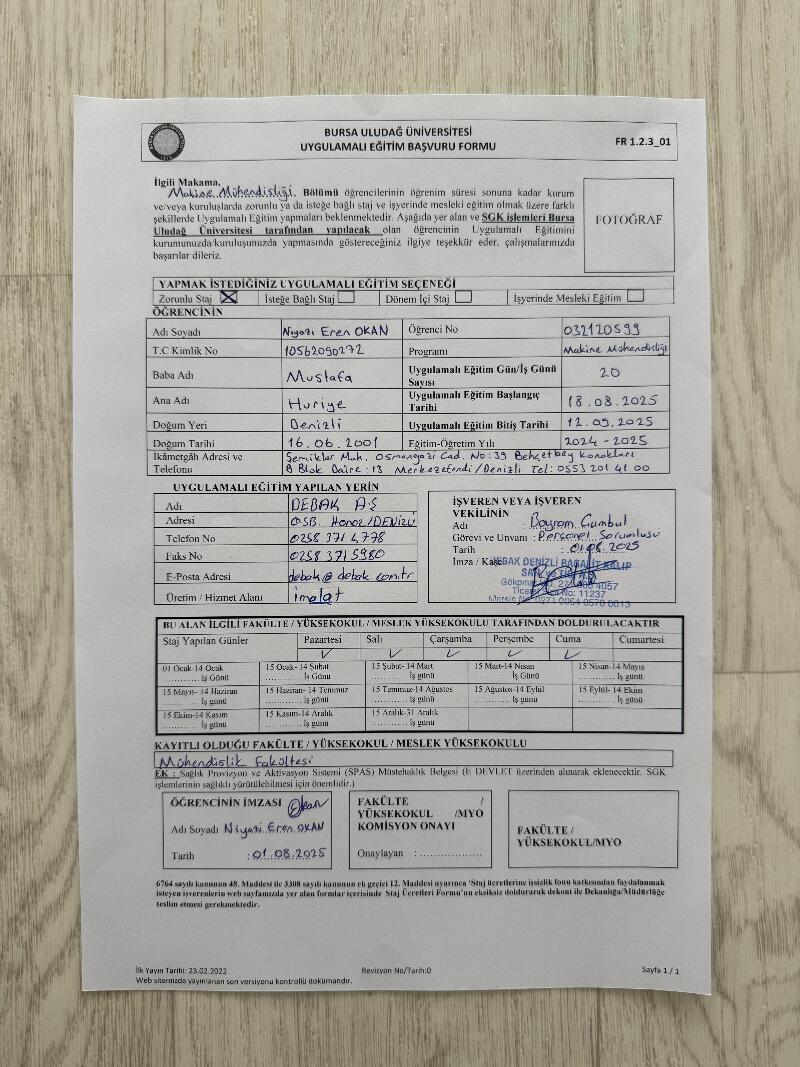 BURSA ULUDAĞ ÜNİVERSİTESİ
UYGULAMALI EĞİTİM BAŞVURU FORMU
FR 1.2.3_01
İlgili Makama,
Makine Mühendisliği. Bölümü öğrencilerinin öğrenim süresi sonuna kadar kurum
ve/veya kuruluşlarda zorunlu ya da isteğe bağlı staj ve işyerinde mesleki eğitim olmak üzere farklı
şekillerde Uygulamalı Eğitim yapmaları beklenmektedir. Aşağıda yer alan ve SGK işlemleri Bursa
Uludağ Üniversitesi tarafından yapılacak olan öğrencinin Uygulamalı Eğitimini
kurumunuzda/kuruluşunuzda yapmasında göstereceğiniz ilgiye teşekkür eder, çalışmalarınızda
başarılar dileriz.
FOTOĞRAF
YAPMAK İSTEDİĞİNİZ UYGULAMALI EĞİTİM SEÇENEĞİ
Zorunlu Staj İsteğe Bağlı Staj Dönem İçi Staj İşyerinde Mesleki Eğitim
ÖĞRENCİNİN
Adı Soyadı Niyazi Eren OKAN Öğrenci No 032120599
T.C Kimlik No 10562090272 Programı Makine Mühendisliği
Baba Adı Mustafa Uygulamalı Eğitim Gün/İş Günü Sayısı 20
Ana Adı Huriye Uygulamalı Eğitim Başlangıç Tarihi 18.08.2025
Doğum Yeri Denizli Uygulamalı Eğitim Bitiş Tarihi 12.09.2025
Doğum Tarihi 16.06.2001 Eğitim-Öğretim Yılı 2024-2025
İkâmetgâh Adresi ve Şemikler Mah. Osmangazi Cad. No:39 Behçetbey Konakları
Telefonu B Blok Daire:13 Merkezefendi/Denizli Tel: 0553 201 41 00
UYGULAMALI EĞİTİM YAPILAN YERİN
Adı DEBAK A.Ş
Adresi OSB. Honaz/DENİZLİ
Telefon No 0258 371 4778
Faks No 0258 371 5980
E-Posta Adresi debak@debak.com.tr
Üretim / Hizmet Alanı imalat
İŞVEREN VEYA İŞVEREN
VEKİLİNİN
Adı : Bayram Cumbul
Görevi ve Unvanı : Personel Sorumlusu
Tarih : 01.08.2025
İmza / Kaşe
DEBAK DENİZLİ BAĞALIT KALIP
BU ALAN İLGİLİ FAKÜLTE / YÜKSEKOKUL / MESLEK YÜKSEKOKULU TARAFINDAN DOLDURULACAKTIR
Staj Yapılan Günler Pazartesi Salı Çarşamba Perşembe Cuma Cumartesi
✓ ✓ ✓ ✓ ✓
01 Ocak-14 Ocak 15 Ocak- 14 Şubat 15 Şubat- 14 Mart 15 Mart-14 Nisan 15 Nisan-14 Mayıs
............ İş Günü ............ İş Günü ............ İş günü ............ İş Günü ............ İş günü
15 Mayıs- 14 Haziran 15 Haziran- 14 Temmuz 15 Temmuz-14 Ağustos 15 Ağustos-14 Eylül 15 Eylül- 14 Ekim
............ İş günü ............ İş günü ............ İş günü ............ İş günü ............ İş günü
15 Ekim-14 Kasım 15 Kasım-14 Aralık 15 Aralık-31 Aralık
............ İş günü ............ İş günü ............ İş günü
KAYITLI OLDUĞU FAKÜLTE / YÜKSEKOKUL / MESLEK YÜKSEKOKULU
Mühendislik Fakültesi
EK : Sağlık Provizyon ve Aktivasyon Sistemi (SPAS) Müstehaklık Belgesi (E DEVLET üzerinden alınarak eklenecektir. SGK
işlemlerinin sağlıklı yürütülebilmesi için önemlidir.)
ÖĞRENCİNİN İMZASI Okan
Adı Soyadı Niyazi Eren OKAN
Tarih : 01.08.2025
FAKÜLTE /
YÜKSEKOKUL /MYO
KOMİSYON ONAYI
Onaylayan : ..................
FAKÜLTE /
YÜKSEKOKUL/MYO
6764 sayılı kanunun 48. Maddesi ile 3308 sayılı kanunun ek geçici 12. Maddesi uyarınca ‘Staj ücretlerine işsizlik fonu katkısından faydalanmak
isteyen işverenlerin web sayfamızda yer alan formlar içerisinde Staj Ücretleri Formu’nu eksiksiz doldurarak dekont ile Dekanlığa/Müdürlüğe
teslim etmesi gerekmektedir.
İlk Yayın Tarihi: 23.02.2022 Revizyon No/Tarih:0 Sayfa 1 / 1
Web sitemizde yayınlanan son versiyonu kontrollü dokümandır.